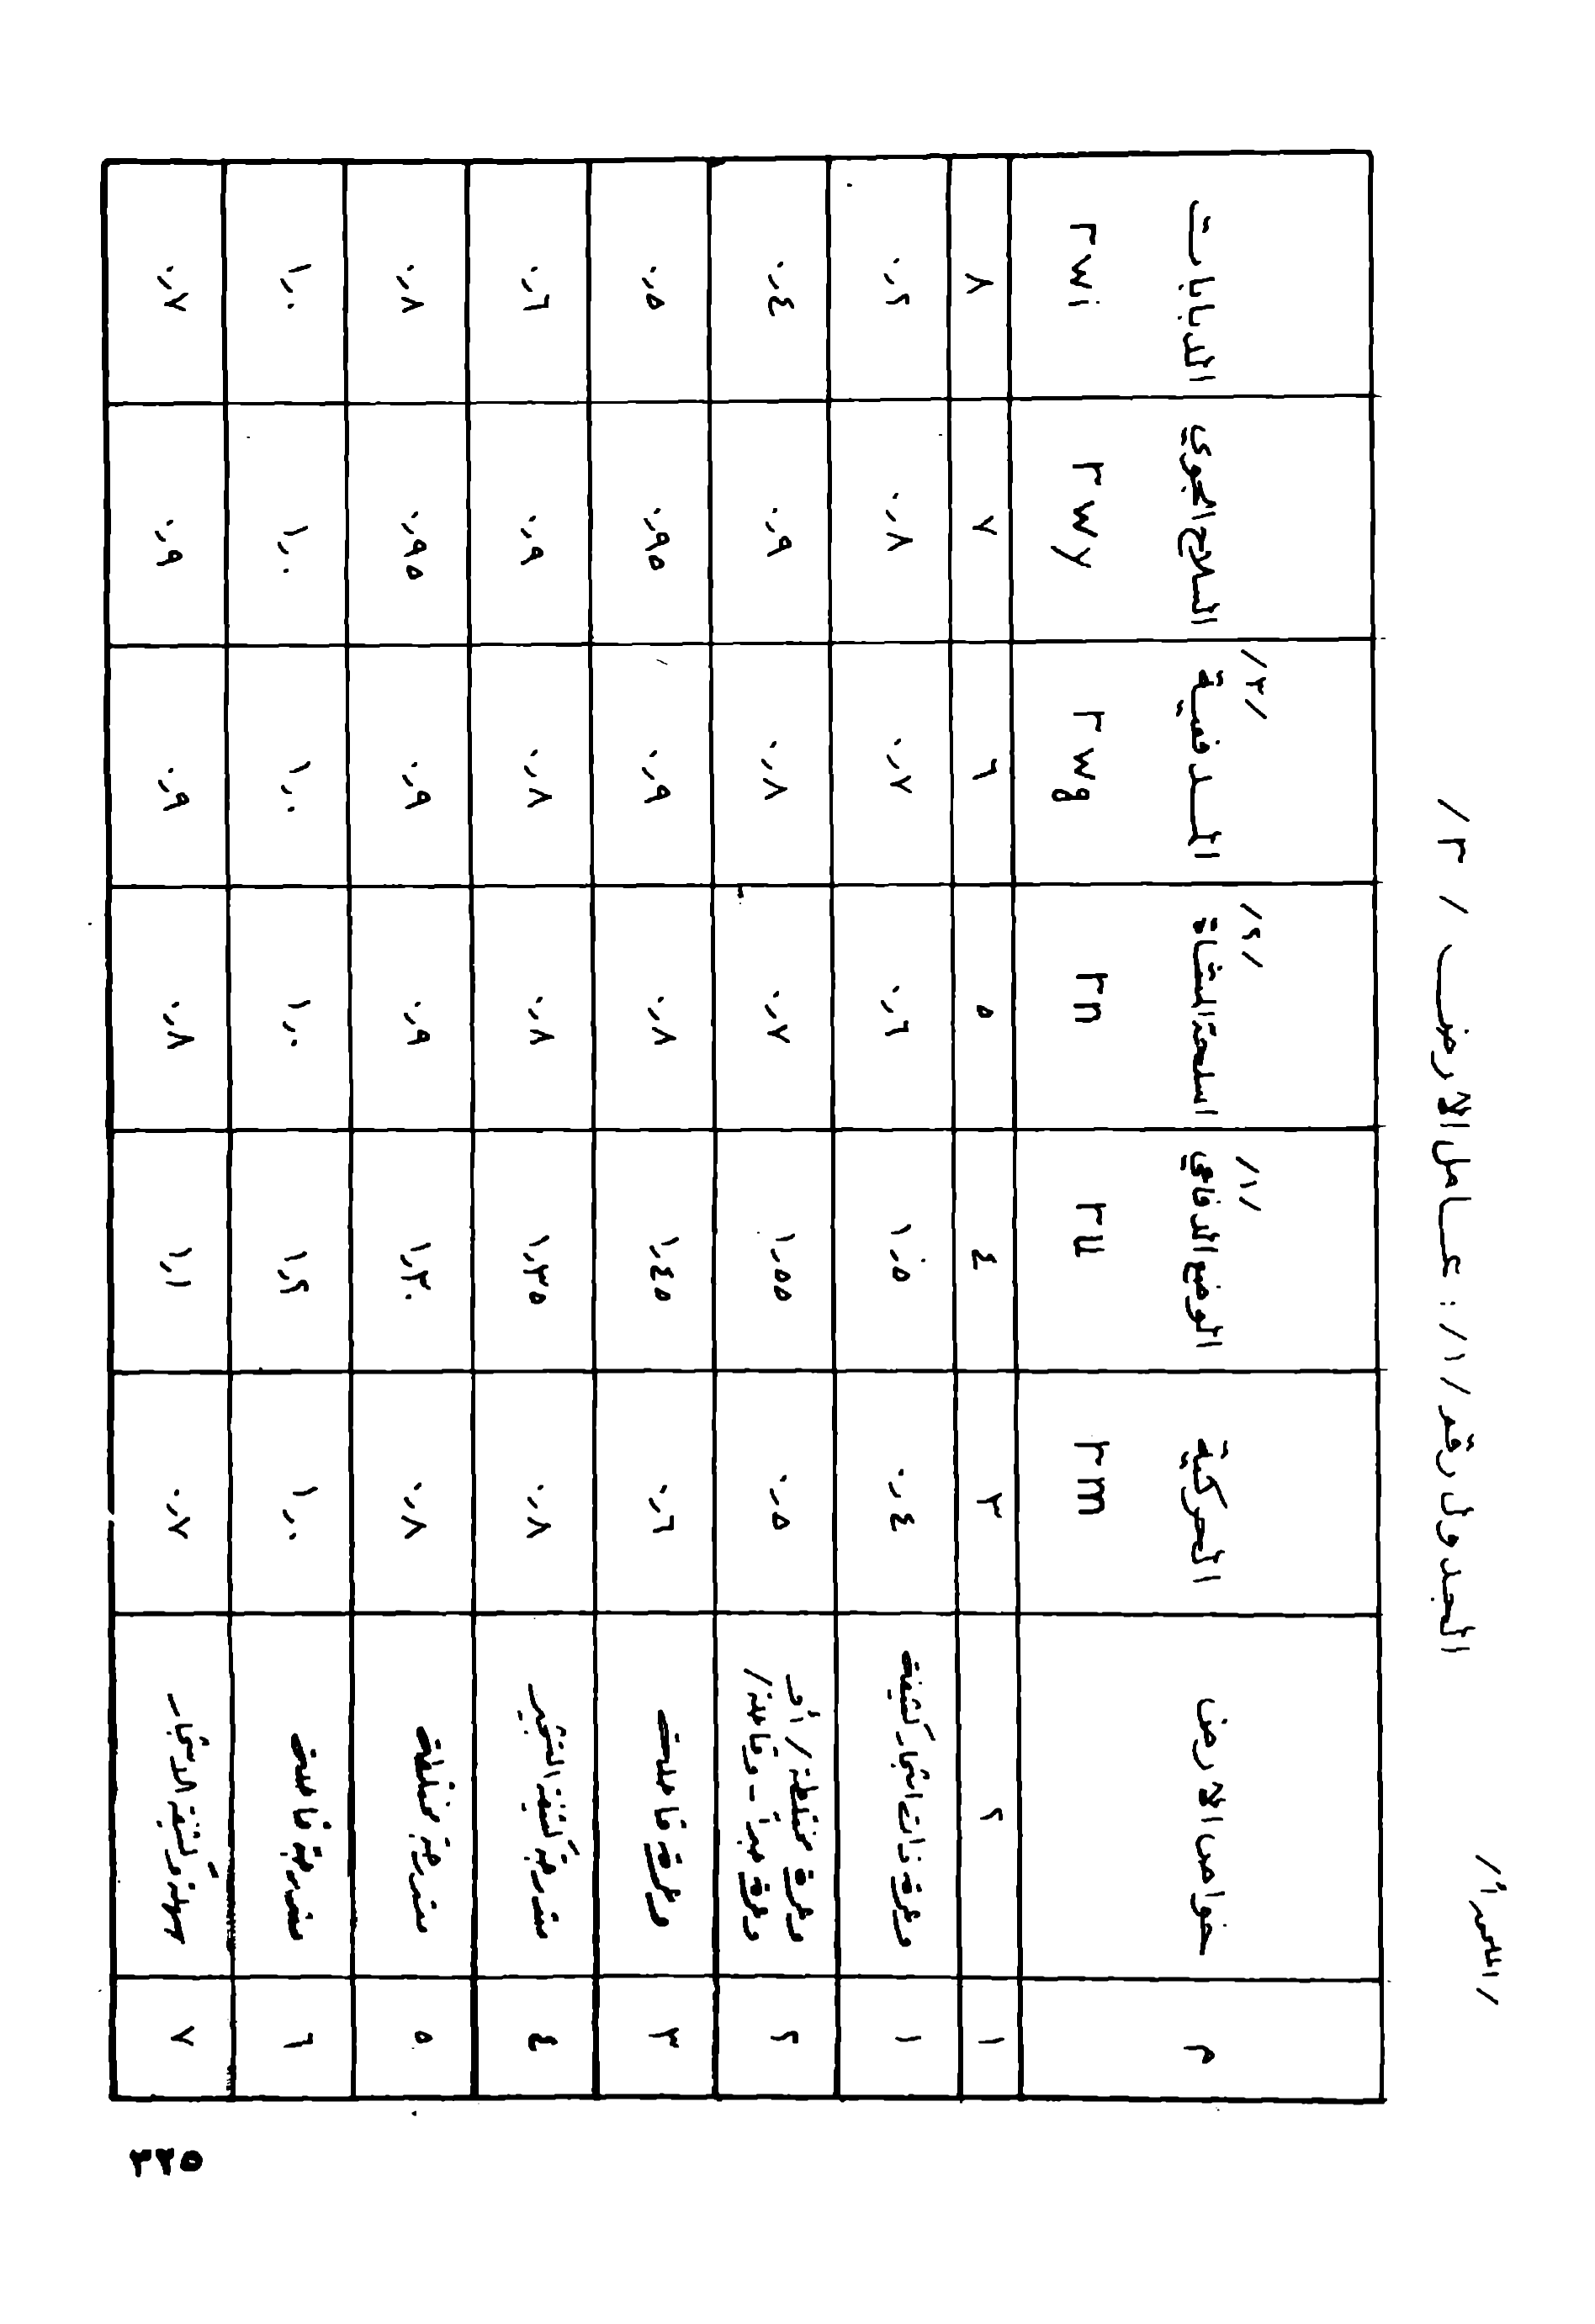 /الملحق "أ"/
الجدول رقم /١/: عامل الارض /٣/
م
خواص الارض
الحركية
rm
/١/
الوضع الدفاعي
ru
/٢/
اسلحة المشاة
rn
/٣/
المدفعية
rwg
السلاح الجوي
rwy
الدبابات
rwi
١ ٢ ٣ ٤ ٥ ٦ ٧ ٨
١ وعرة ذات اشجار كثيفة ٠,٤ ١,٥ ٠,٦ ٠,٧ ٠,٨ ٠,٢
٢ وعرة مختلطة / أو
وعرة جداً - وقاحلة / ٠,٥ ١,٥٥ ٠,٧ ٠,٨ ٠,٩ ٠,٤
٣ وعرة قاحلة ٠,٦ ١,٤٥ ٠,٨ ٠,٩ ٠,٩٥ ٠,٥
٤ متدرجة كثيفة الشجر ٠,٨ ١,٣٥ ٠,٨ ٠,٨ ٠,٩ ٠,٦
٥ متدرجة مختلطة ٠,٨ ١,٣٠ ٠,٩ ٠,٩ ٠,٩٥ ٠,٨
٦ متدرجة قاحلة ١,٠ ١,٢ ١,٠ ١,٠ ١,٠ ١,٠
٧ سهلة وكثيفة الاشجار ٠,٧ ١,١ ٠,٨ ٠,٩ ٠,٩ ٠,٧
٢٢٥